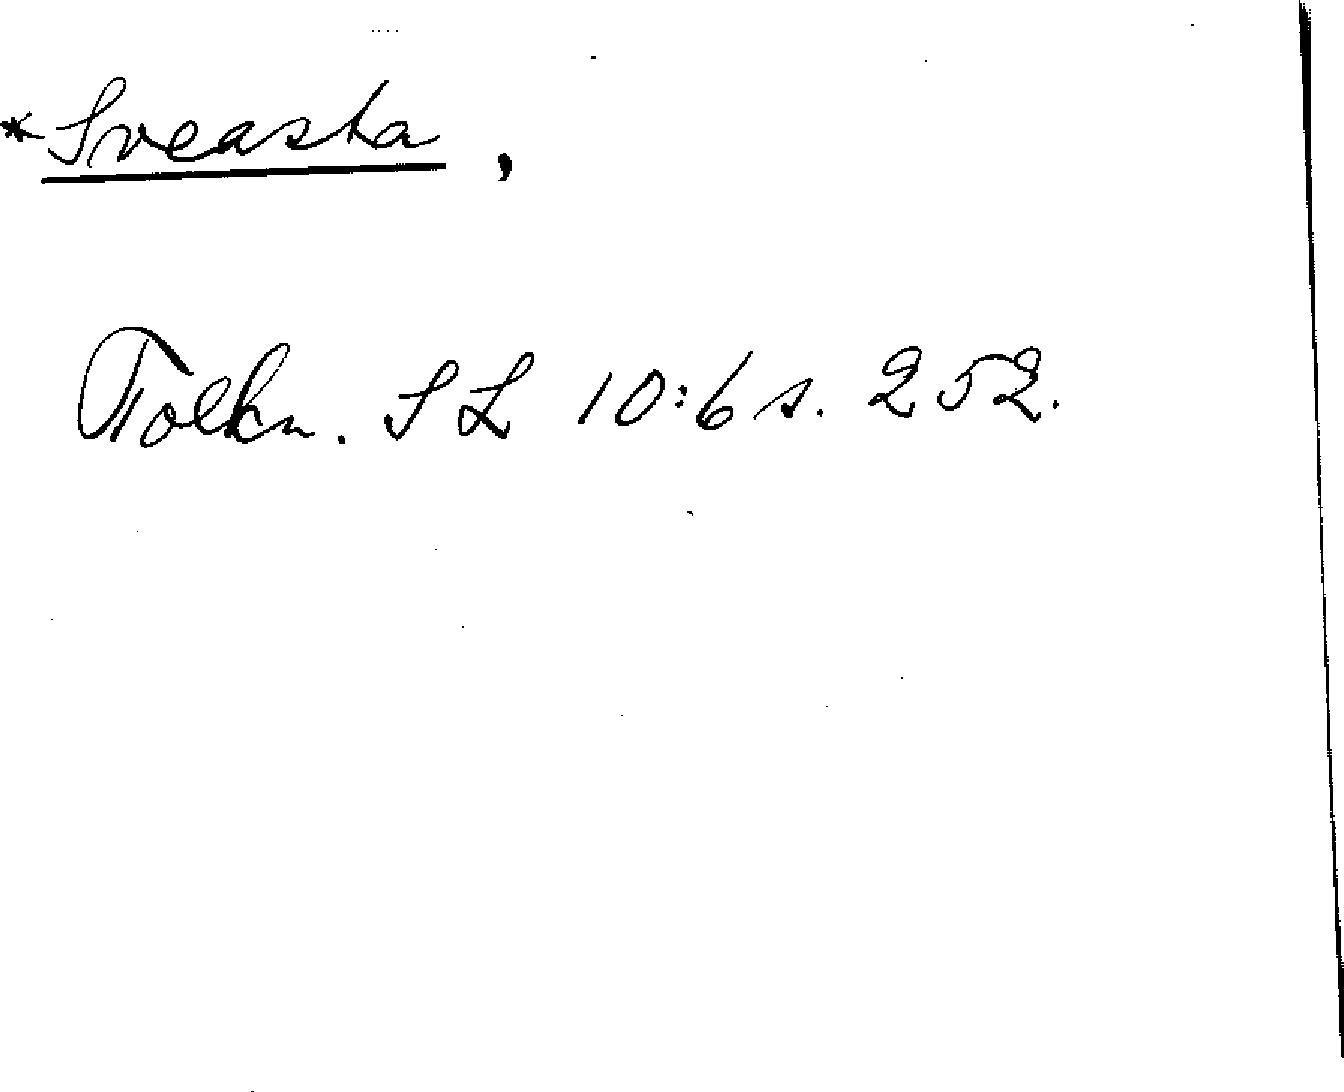 *Sveasta,
Tolkn. SL 10:6 s. 252.